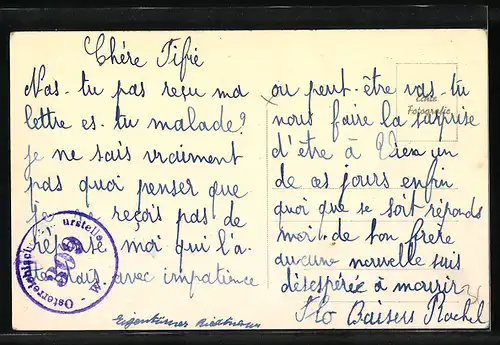 Chére Fifie
N'as-tu pas reçu ma
lettre es-tu malade?
je ne sais vraiment
pas quoi penser que
je reçois pas de
réponse moi qui l'a-
ttendais avec impatience
Österreichische
urstelle
399
W.
ou peut-être vas-tu
nous faire la surprise
d'être à un
de ces jours enfin
quoi que ce soit réponds
moi. de ton frère
aucune nouvelle suis
désespérée à mourir
Baisers Rachel
Echte
Fotografie